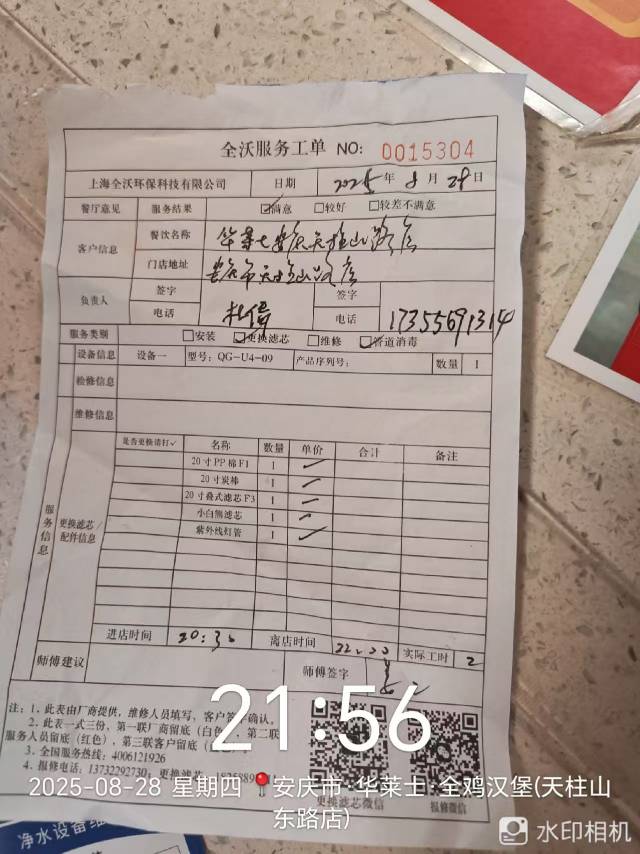 全沃服务工单 NO: 0015304
上海全沃环保科技有限公司 日期 2025年8月28日
餐厅意见 服务结果 ☑满意 □较好 □较差不满意
客户信息 餐饮名称 华莱士安庆天柱山路店
门店地址 安庆市天柱山路店
负责人 签字 签字
电话 杜伟 电话 17355691314
服务类别 □安装 ☑更换滤芯 □维修 ☑管道消毒
设备信息 设备一 型号: QG-U4-09 产品序列号: 数量 1
检修信息
维修信息
服务信息 更换滤芯/配件信息
是否更换请打√ 名称 数量 单价 合计 备注
20寸PP棉F1 1
20寸炭棒 1
20寸叠式滤芯F3 1
小白熊滤芯 1
紫外线灯管 1
进店时间 20:30 离店时间 22:00 实际工时 2
师傅建议 师傅签字
注: 1、此表由厂商提供，维修人员填写、客户签字确认。
2、此表一式三份、第一联厂商留底（白色）、第二联
服务人员留底（红色），第三联客户留底
3、全国服务热线: 4006121926
4、报修电话: 13732292730; 更换滤芯
更换滤芯微信 报修微信
21:56
2025-08-28 星期四 安庆市·华莱士·全鸡汉堡(天柱山
东路店)
净水设备维
水印相机